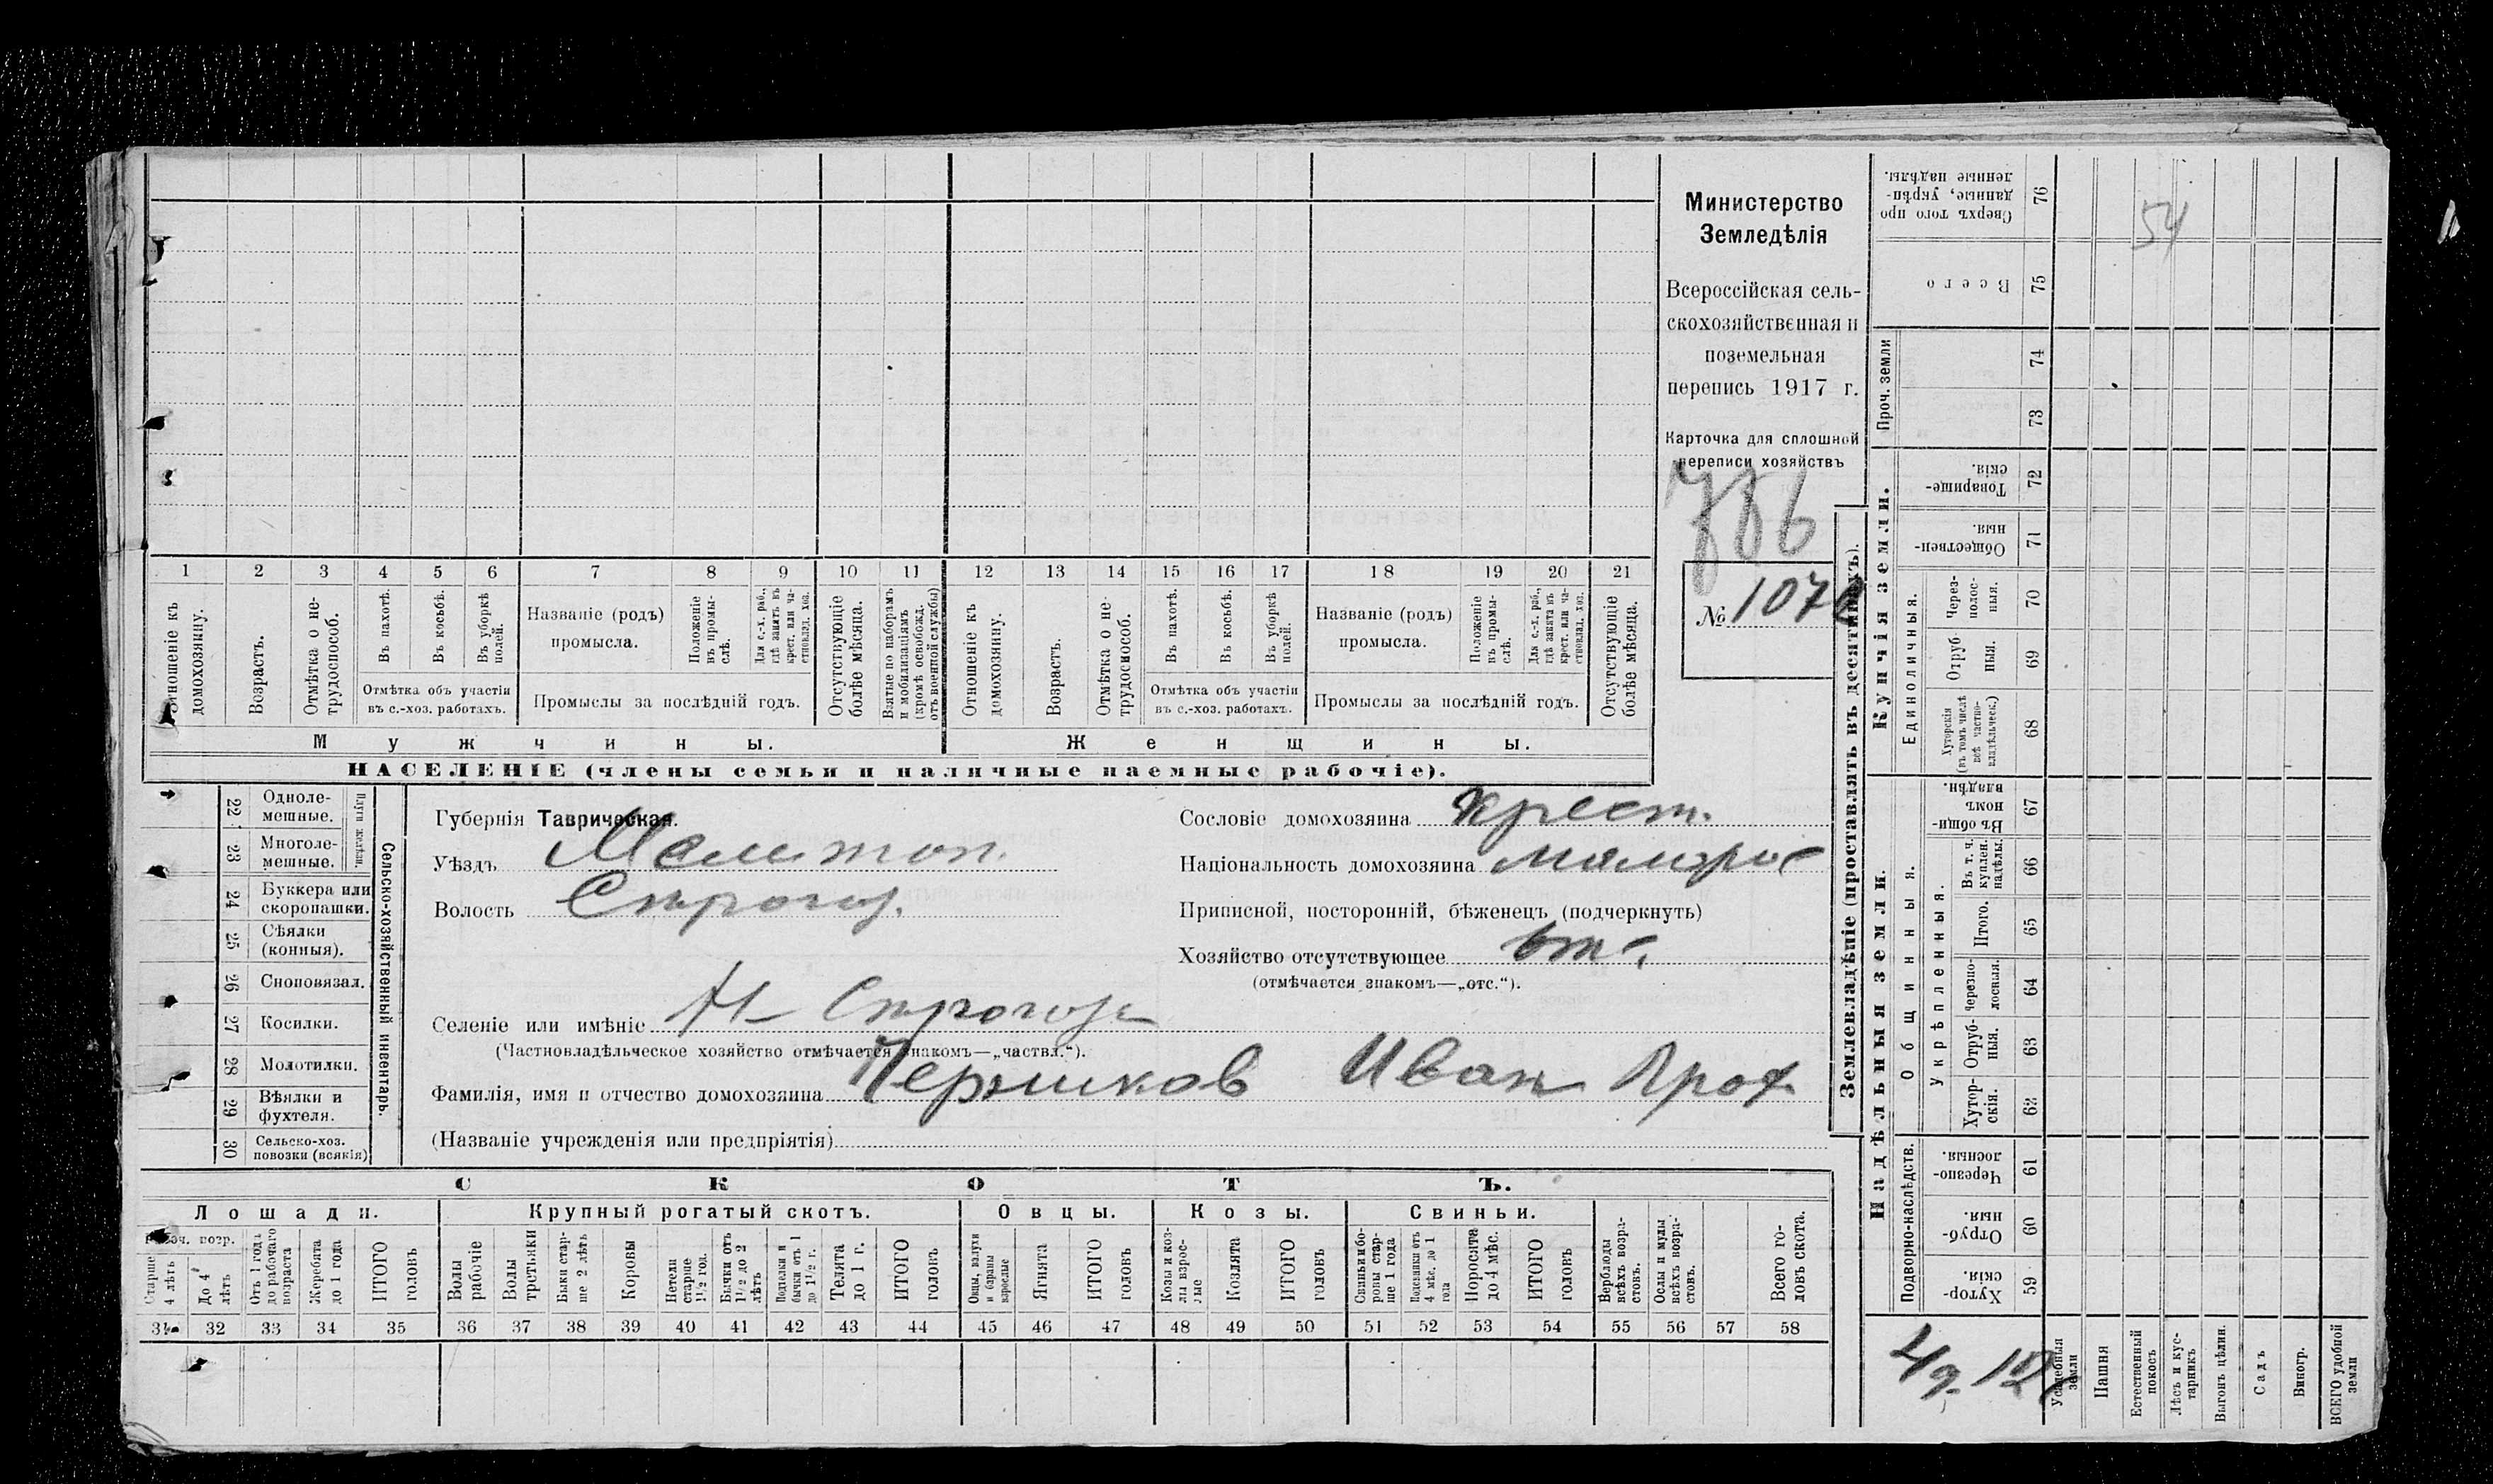 Министерство
Земледѣлія
Всероссійская сель-
скохозяйственная и
поземельная
перепись 1917 г.
Карточка для сплошной
переписи хозяйствъ
786
№ 1070
1 2 3 4 5 6 7 8 9 10 11 12 13 14 15 16 17 18 19 20 21
Отношеніе къ домохозяину.
Возрастъ.
Отмѣтка о не-трудоспособ.
Въ пахотѣ.
Въ косьбѣ.
Въ уборкѣ полей.
Отмѣтка объ участіи
въ с.-хоз. работахъ.
Названіе (родъ)
промысла.
Положеніе въ промы-слѣ.
Для с.-х. раб., гдѣ занятъ въ крест. или ча-стновлад. хоз.
Промыслы за послѣдній годъ.
Отсутствующіе болѣе мѣсяца.
Взятые по наборамъ и мобилизаціямъ (кромѣ освобожд. отъ военной службы)
Отношеніе къ домохозяину.
Возрастъ.
Отмѣтка о не-трудоспособ.
Въ пахотѣ.
Въ косьбѣ.
Въ уборкѣ полей.
Отмѣтка объ участіи
въ с.-хоз. работахъ.
Названіе (родъ)
промысла.
Положеніе въ промы-слѣ.
Для с.-х. раб., гдѣ занята въ крест. или ча-стновлад. хоз.
Промыслы за послѣдній годъ.
Отсутствующіе болѣе мѣсяца.
Мужчины.
Женщины.
НАСЕЛЕНІЕ (члены семьи и наличные наемные рабочіе).
22 Одноле-мешные.
23 Многоле-мешные.
24 Буккера или скоропашки.
25 Сѣялки (конныя).
26 Сноповязал.
27 Косилки.
28 Молотилки.
29 Вѣялки и фухтеля.
30 Сельско-хоз. повозки (всякія)
Сельско-хозяйственный инвентарь.
Губернія Таврическая.
Уѣздъ Мелитоп.
Волость Строгоз.
Селеніе или имѣніе Н Строгоз
(Частновладѣльческое хозяйство отмѣчается знакомъ—„частвл.“).
Фамилія, имя и отчество домохозяина Першков Иван Проф
(Названіе учрежденія или предпріятія)
Сословіе домохозяина крест.
Національность домохозяина малорос
Приписной, посторонній, бѣженецъ (подчеркнуть)
Хозяйство отсутствующее отс.
(отмѣчается знакомъ—„отс.“).
СКОТЪ.
Лошади.
Крупный рогатый скотъ.
Овцы.
Козы.
Свиньи.
Рабоч. возр.
Старше 4 лѣтъ
До 4 лѣтъ
Отъ 1 года до рабочаго возраста
Жеребята до 1 года
ИТОГО головъ
Волы рабочіе
Волы третьяки
Быки стар-ше 2 лѣтъ
Коровы
Нетели старше 1½ год.
Бычки отъ 1½ до 2 лѣтъ
Подтелки и бычки отъ 1 до 1½ г.
Телята до 1 г.
ИТОГО головъ
Овцы, валухи и бараны взрослые
Ягнята
ИТОГО головъ
Козы и коз-лы взрос-лые
Козлята
ИТОГО головъ
Свиньи и бо-ровы стар-ше 1 года
Подсвинки отъ 4 мѣс. до 1 года
Поросята до 4 мѣс.
ИТОГО головъ
Верблюды всѣхъ возра-стовъ.
Ослы и мулы всѣхъ возра-стовъ.
Всего го-ловъ скота.
31 32 33 34 35 36 37 38 39 40 41 42 43 44 45 46 47 48 49 50 51 52 53 54 55 56 57 58
Землевладѣніе (проставлять въ десятинахъ).
Сверхъ того про-данные, укрѣп-ленные надѣлы. 76
54
Всего 75
Проч. земли
74
73
Купчія земли.
Товарище-скія. 72
Обществен-ныя. 71
Единоличныя.
Через-полос-ныя. 70
Отруб-ныя. 69
Хуторскія (въ томъ числѣ всѣ частно-владѣльческ.) 68
Надѣльныя земли.
Общинныя.
Въ общи-номъ владѣн. 67
Укрѣпленныя.
Въ т. ч. куплен. надѣлы. 66
Итого. 65
Черезпо-лосныя. 64
Отруб-ныя. 63
Хутор-скія. 62
Подворно-наслѣдств.
Черезпо-лосныя. 61
Отруб-ныя. 60
Хутор-скія. 59
Усадебныя земли
Пашня
Естественный покосъ
Лѣсъ и кус-тарникъ
Выгонъ цѣлин.
Садъ
Виногр.
ВСЕГО удобной земли